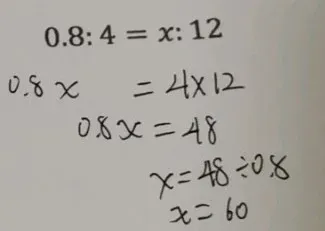 0.8: 4 = x: 12
0.8x = 4×12
0.8x = 48
x=48÷0.8
x=60